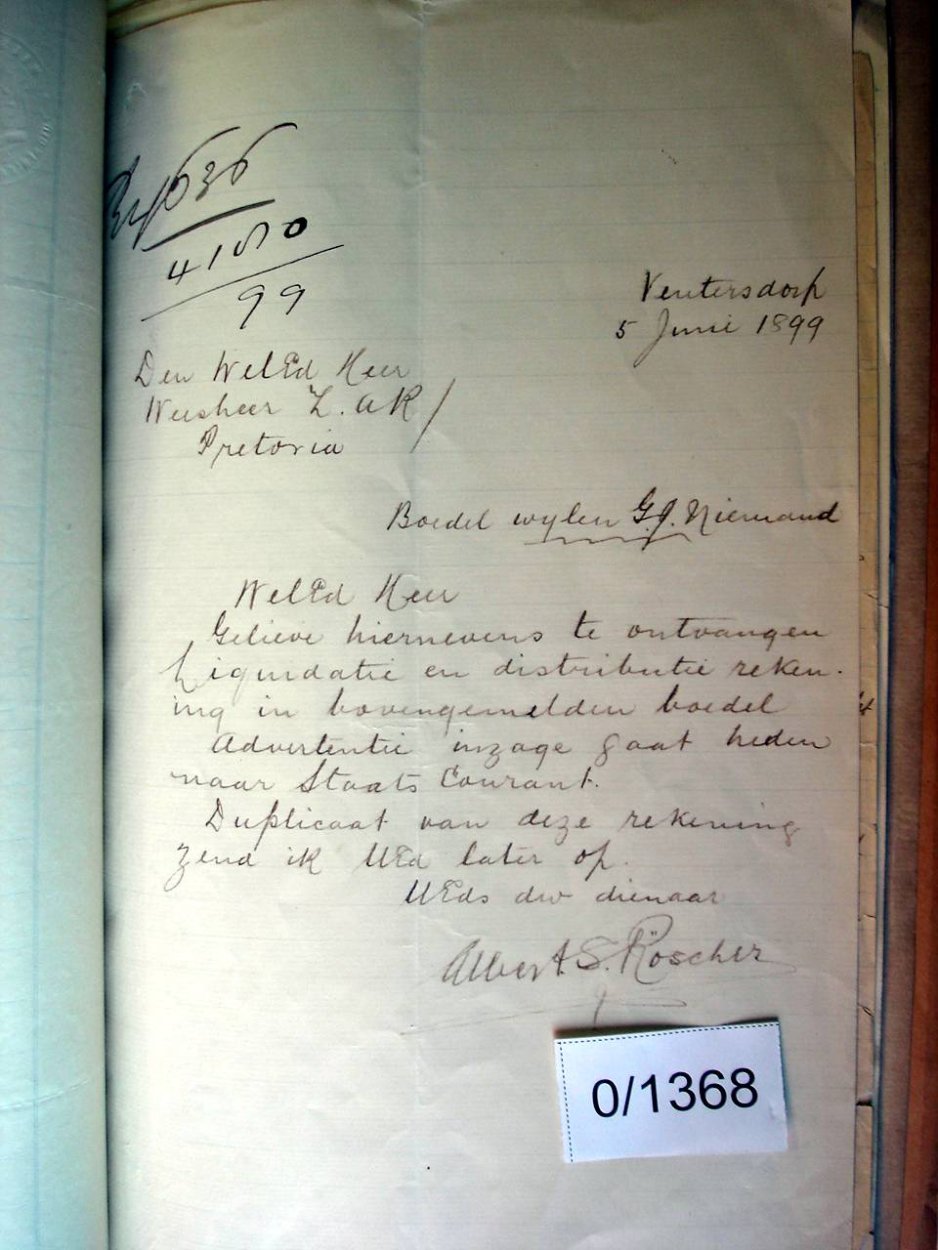 4636
4150
99
Ventersdorp
5 Junie 1899
Den WelEd Heer
Weesheer Z.A.R/
Pretoria
Boedel wylen G.J. Niemand
WelEd Heer
Gelieve hiernevens te ontvangen
Liquidatie en distributie reken-
ing in bovengemelden boedel
Advertentie inzage gaat heden
naar Staats Courant.
Duplicaat van deze rekening
zend ik UEd later op.
UEds dw dienaar
Albert S. Röscher
0/1368